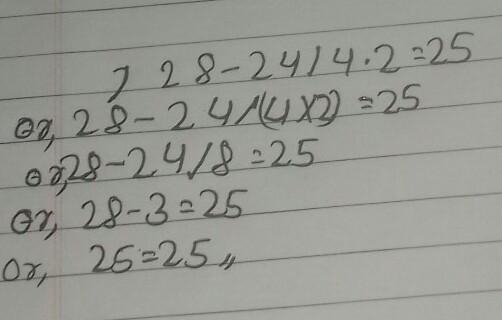 , 28-24/4·2=25
Or, 28-24/(4×2)=25
Or, 28-24/8=25
Or, 28-3=25
Or, 25=25,,